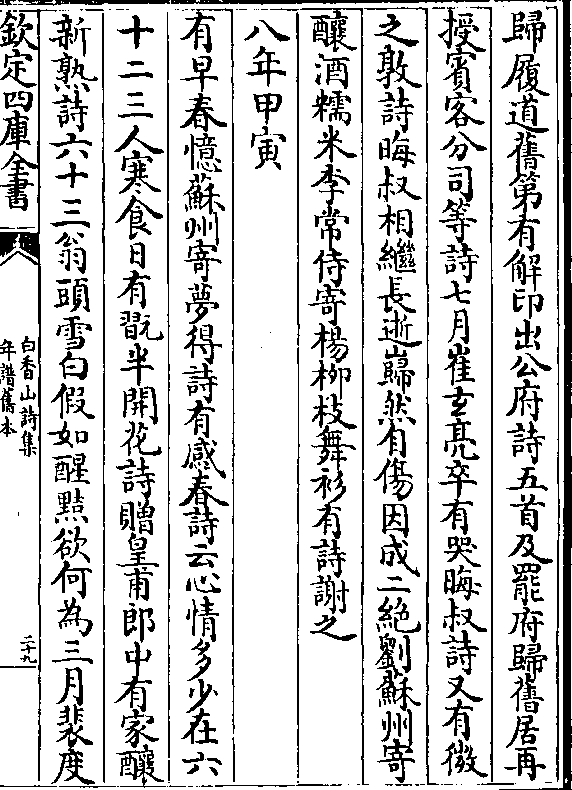 歸履道舊第有解印出公府詩五首及罷府歸舊居再
授賓客分司等詩七月崔玄亮卒有哭晦叔詩又有微
之敦詩晦叔相繼長逝巋然自傷因成二絶劉蘇州寄
釀酒糯米李常侍寄楊柳枝舞衫有詩謝之
八年甲寅
有早春憶蘇州寄夢得詩有感春詩云心情多少在六
十二三人寒食日有翫半開花詩贈皇甫郎中有家釀
新熟詩六十三翁頭雪白假如醒黠欲何為三月裴度
欽定四庫全書
白香山詩集
年譜舊本
二十九